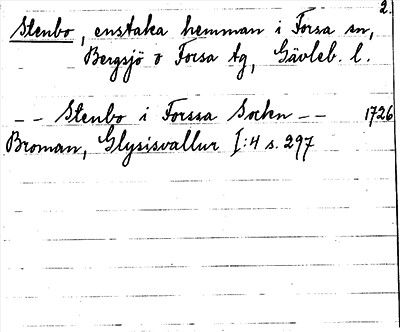 2.
Stenbo, enstaka hemman i Forsa sn,
Bergsjö o Forsa tg, Gävleb. l.
-- Stenbo i Forssa Sockn -- 1726
Broman, Glysisvallur I:4 s. 297